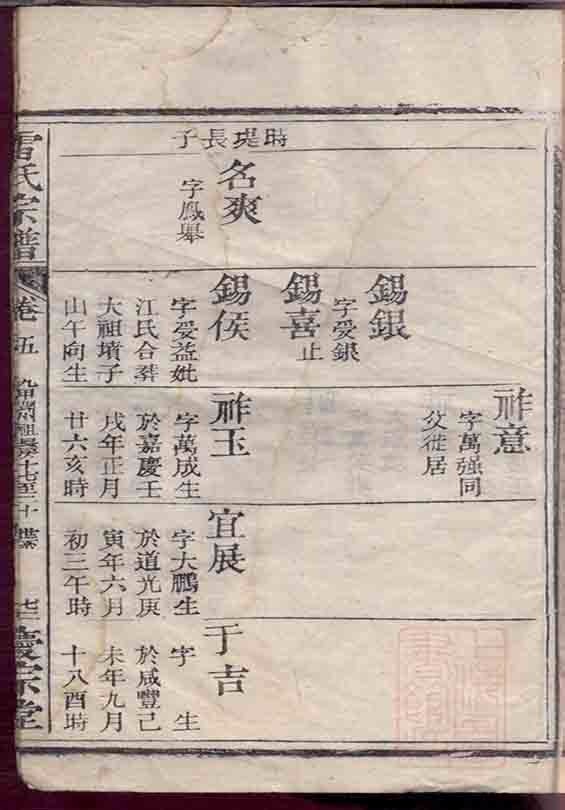 時堤長子
名爽
字鳳舉
錫銀
字受銀
錫喜
止
錫侯
字受益妣
江氏合葬
大祖墳子
山午向生
祚意
字萬强同
父徙居
祚玉
字萬成生
於嘉慶壬
戌年正月
廿六亥時
宜展
字大鵬生
於道光庚
寅年六月
初三午時
于吉
字 生
於咸豐己
未年九月
十八酉時
雷氏宗譜
卷五